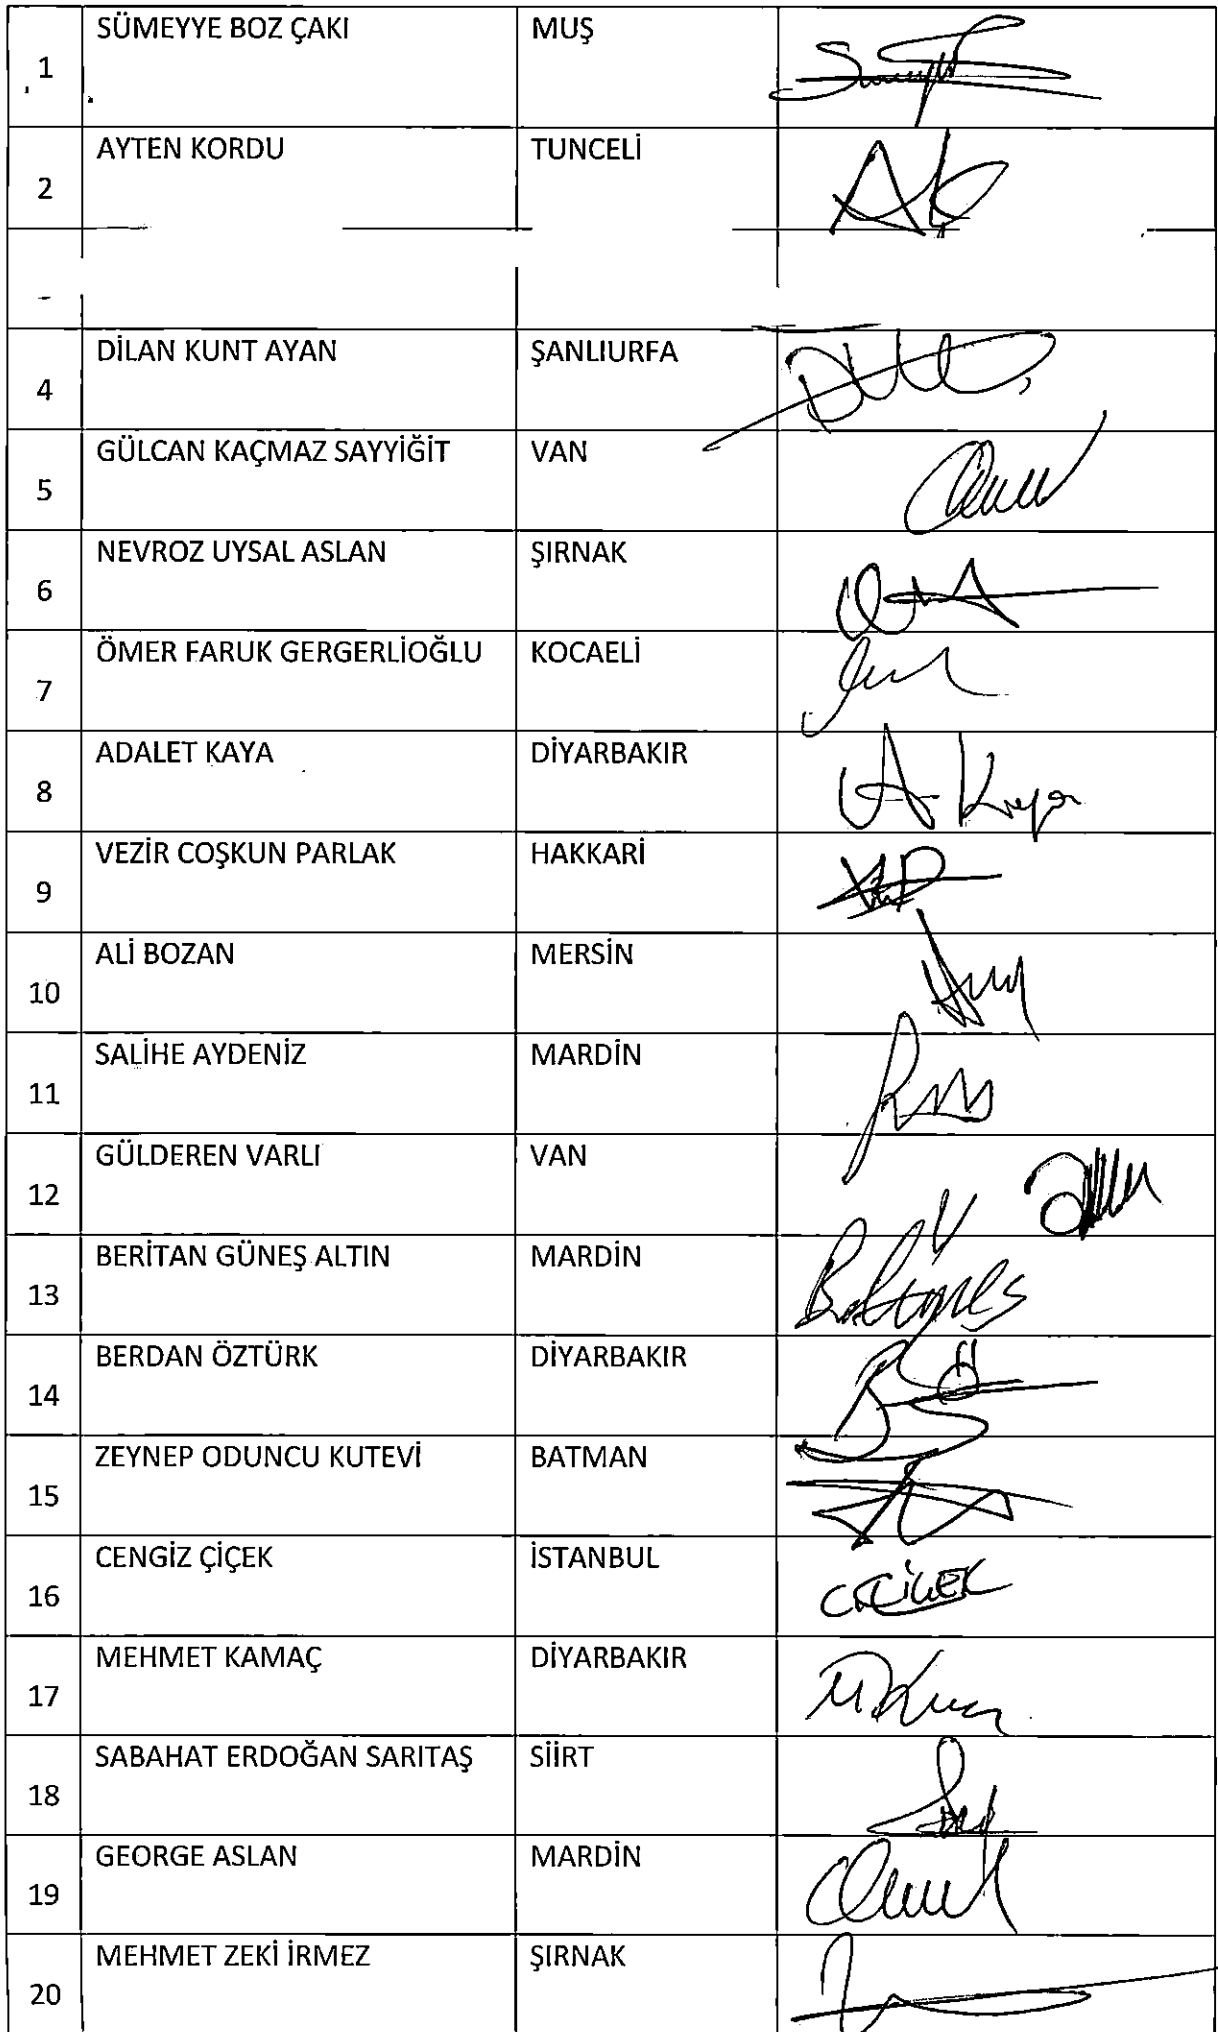 1 SÜMEYYE BOZ ÇAKI MUŞ
2 AYTEN KORDU TUNCELİ
4 DİLAN KUNT AYAN ŞANLIURFA
5 GÜLCAN KAÇMAZ SAYYİĞİT VAN
6 NEVROZ UYSAL ASLAN ŞIRNAK
7 ÖMER FARUK GERGERLİOĞLU KOCAELİ
8 ADALET KAYA DİYARBAKIR A Kaya
9 VEZİR COŞKUN PARLAK HAKKARİ
10 ALİ BOZAN MERSİN
11 SALİHE AYDENİZ MARDİN
12 GÜLDEREN VARLI VAN
13 BERİTAN GÜNEŞ ALTIN MARDİN
14 BERDAN ÖZTÜRK DİYARBAKIR
15 ZEYNEP ODUNCU KUTEVİ BATMAN
16 CENGİZ ÇİÇEK İSTANBUL C.ÇİÇEK
17 MEHMET KAMAÇ DİYARBAKIR
18 SABAHAT ERDOĞAN SARITAŞ SİİRT
19 GEORGE ASLAN MARDİN
20 MEHMET ZEKİ İRMEZ ŞIRNAK